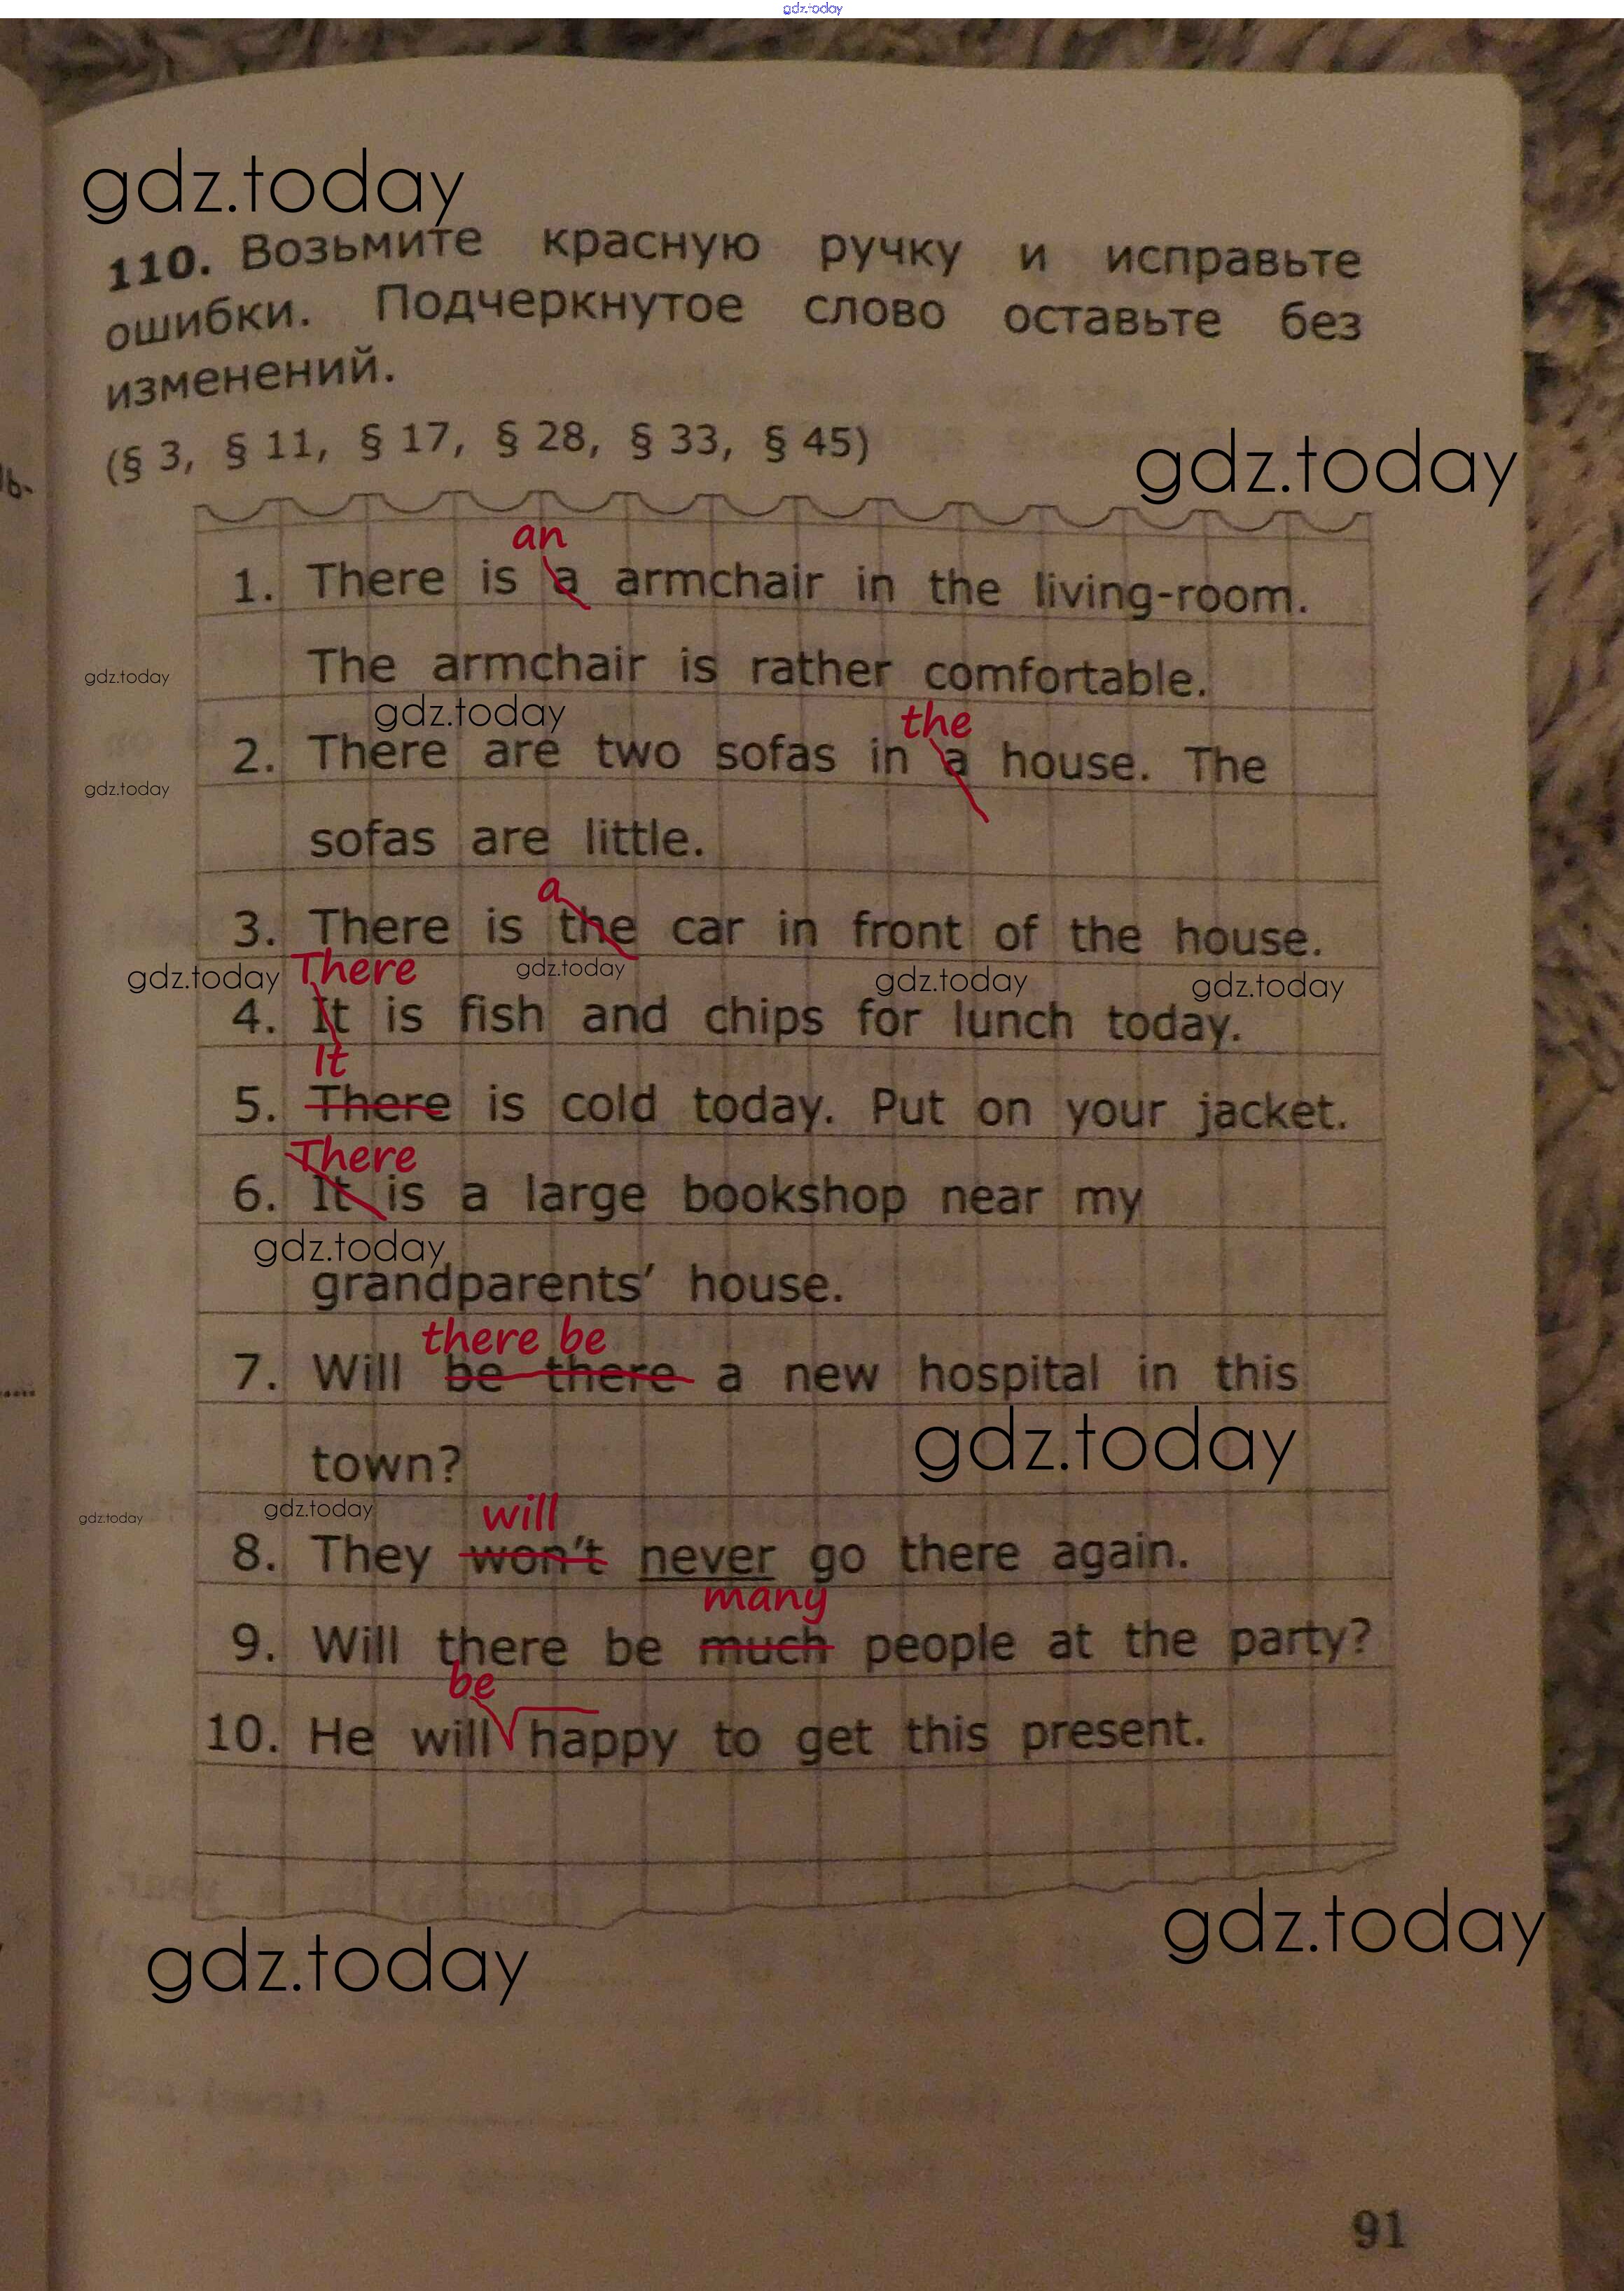 gdz.today
gdz.today
110. Возьмите красную ручку и исправьте
ошибки. Подчеркнутое слово оставьте без
изменений.
(§ 3, § 11, § 17, § 28, § 33, § 45)
gdz.today
an
1. There is a armchair in the living-room.
The armchair is rather comfortable.
gdz.today
gdz.today
the
2. There are two sofas in a house. The
gdz.today
sofas are little.
a
3. There is the car in front of the house.
gdz.today There gdz.today gdz.today gdz.today
4. It is fish and chips for lunch today.
It
5. There is cold today. Put on your jacket.
There
6. It is a large bookshop near my
gdz.today
grandparents’ house.
there be
7. Will be there a new hospital in this
gdz.today
town?
gdz.today gdz.today will
8. They won’t never go there again.
many
9. Will there be much people at the party?
be
10. He will happy to get this present.
gdz.today
gdz.today
91